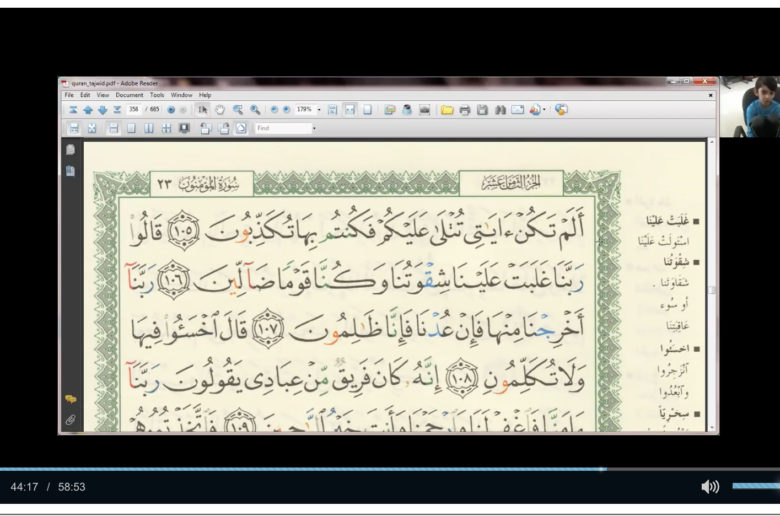 quran_tajwid.pdf - Adobe Reader
File Edit View Document Tools Window Help
358 / 685 179%
Find
سُورَةُ المُؤْمِنُونَ ٢٣
الجُزْءُ الثَّامِنَ عَشَرَ
أَلَمْ تَكُنْ ءَايَٰتِى تُتْلَىٰ عَلَيْكُمْ فَكُنتُم بِهَا تُكَذِّبُونَ ١٠٥ قَالُوا۟
رَبَّنَا غَلَبَتْ عَلَيْنَا شِقْوَتُنَا وَكُنَّا قَوْمًا ضَآلِّينَ ١٠٦ رَبَّنَآ
أَخْرِجْنَا مِنْهَا فَإِنْ عُدْنَا فَإِنَّا ظَٰلِمُونَ ١٠٧ قَالَ ٱخْسَـُٔوا۟ فِيهَا
وَلَا تُكَلِّمُونِ ١٠٨ إِنَّهُۥ كَانَ فَرِيقٌ مِّنْ عِبَادِى يَقُولُونَ رَبَّنَآ
غَلَبَتْ عَلَيْنَا
اسْتَوْلَتْ عَلَيْنَا
شِقْوَتُنَا
شَقَاوَتُنا .
أو سُوء
عَاقِبَتِنَا
اخسئوا
انْزَجِرُوا
وابْعُدُوا
سِخْرِيّاً
44:17 / 58:53